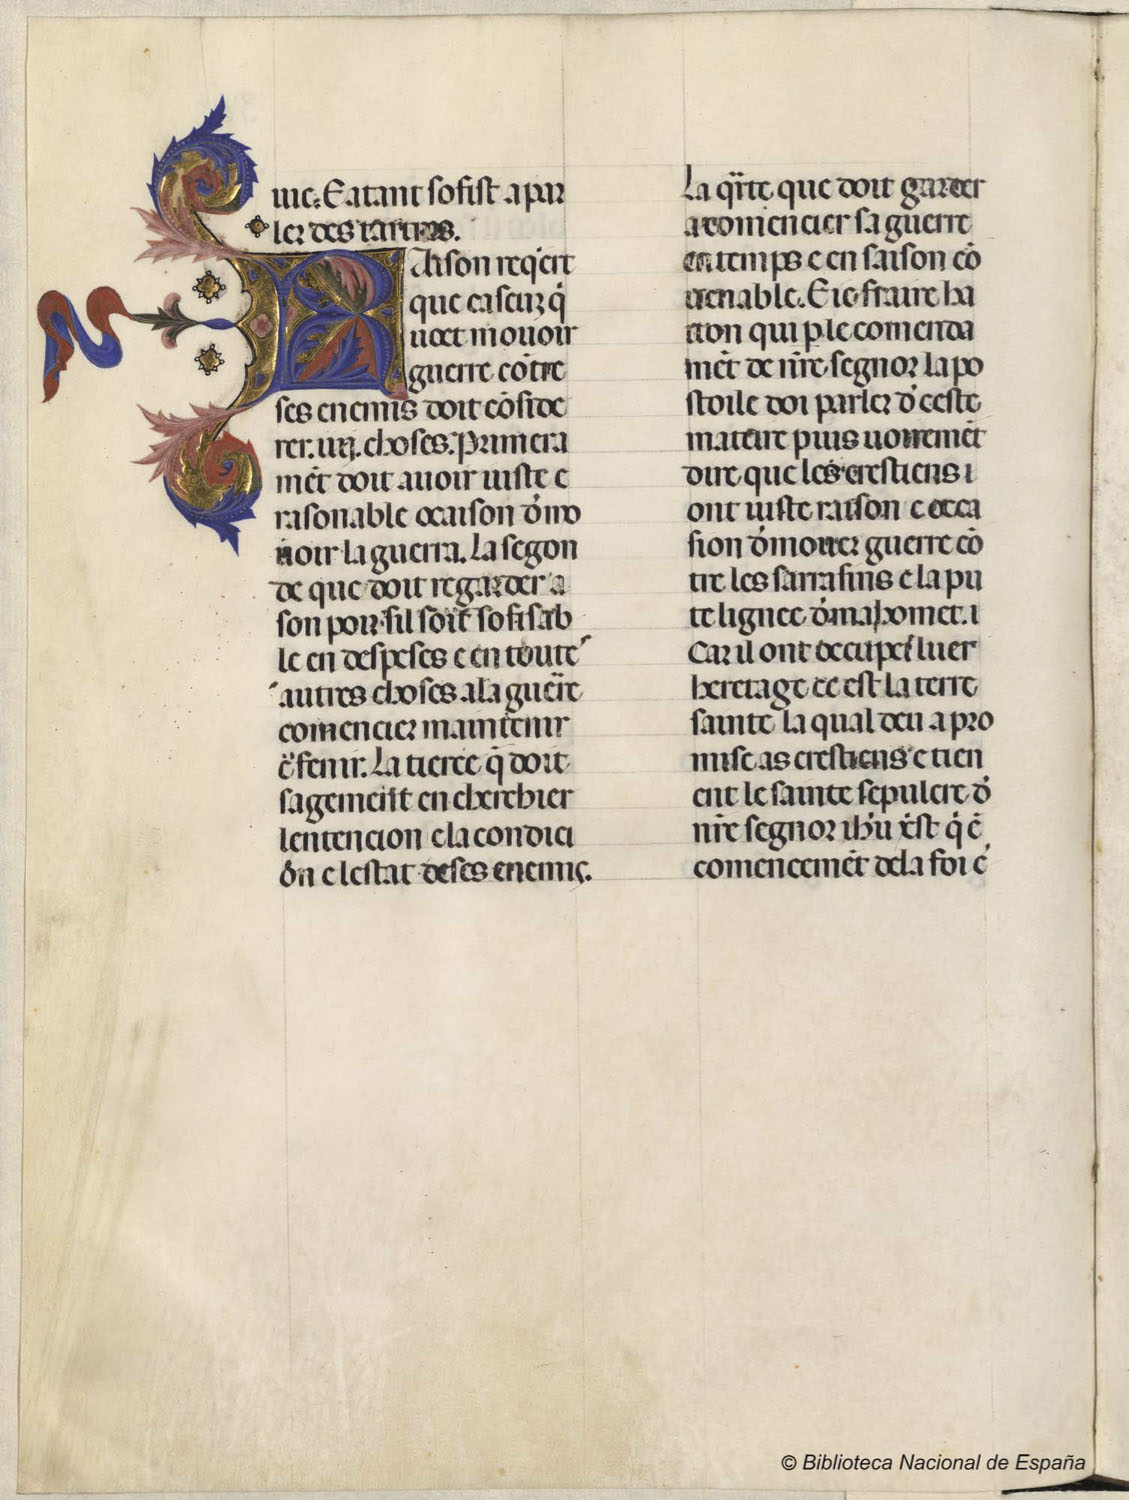 uie. E atant sofist a par
ler des tartres.
Raison reqͥert
que cascuz q̇
uoet mouoir
guerre cõtre
ses enemis doit cõside
rer .iiij. choses. Primera
mẽt doit auoir iuste e
rasonable ocaison d'mo
uoir la guerra. La segon
de que doit regarder a
son poir sil soit sofisab
le en despeses e en toute
autres choses a la guerre
comencier maintenir
e fenir. La tierce q̇ doit
sagement encherchier
lentencion e la condici
on e lestat de ses enemis.
La q̈rte que doit garder
a comencier sa guerre
en temps e en saison cõ
uenable. E ie fraire ha
iton qui p le comenda
mẽt de nr̃e segnor la po
stoile doi parler d' ceste
mateire puis uoiremẽt
dire que les crestiens i
ont iuste raison e occa
sion d' mouer guerre cõ
tre les sarrasins e la pu
te lignee d' mahomet. i
Car il ont occupe luer
heretage ce est la terre
sainte la qual deu a pro
mise as crestiens e tien
ent le sainte sepulcre d'
nr̃e segnor ih'u x̃st q̇ ẽ
comencemẽt de la foi c̃
© Biblioteca Nacional de España